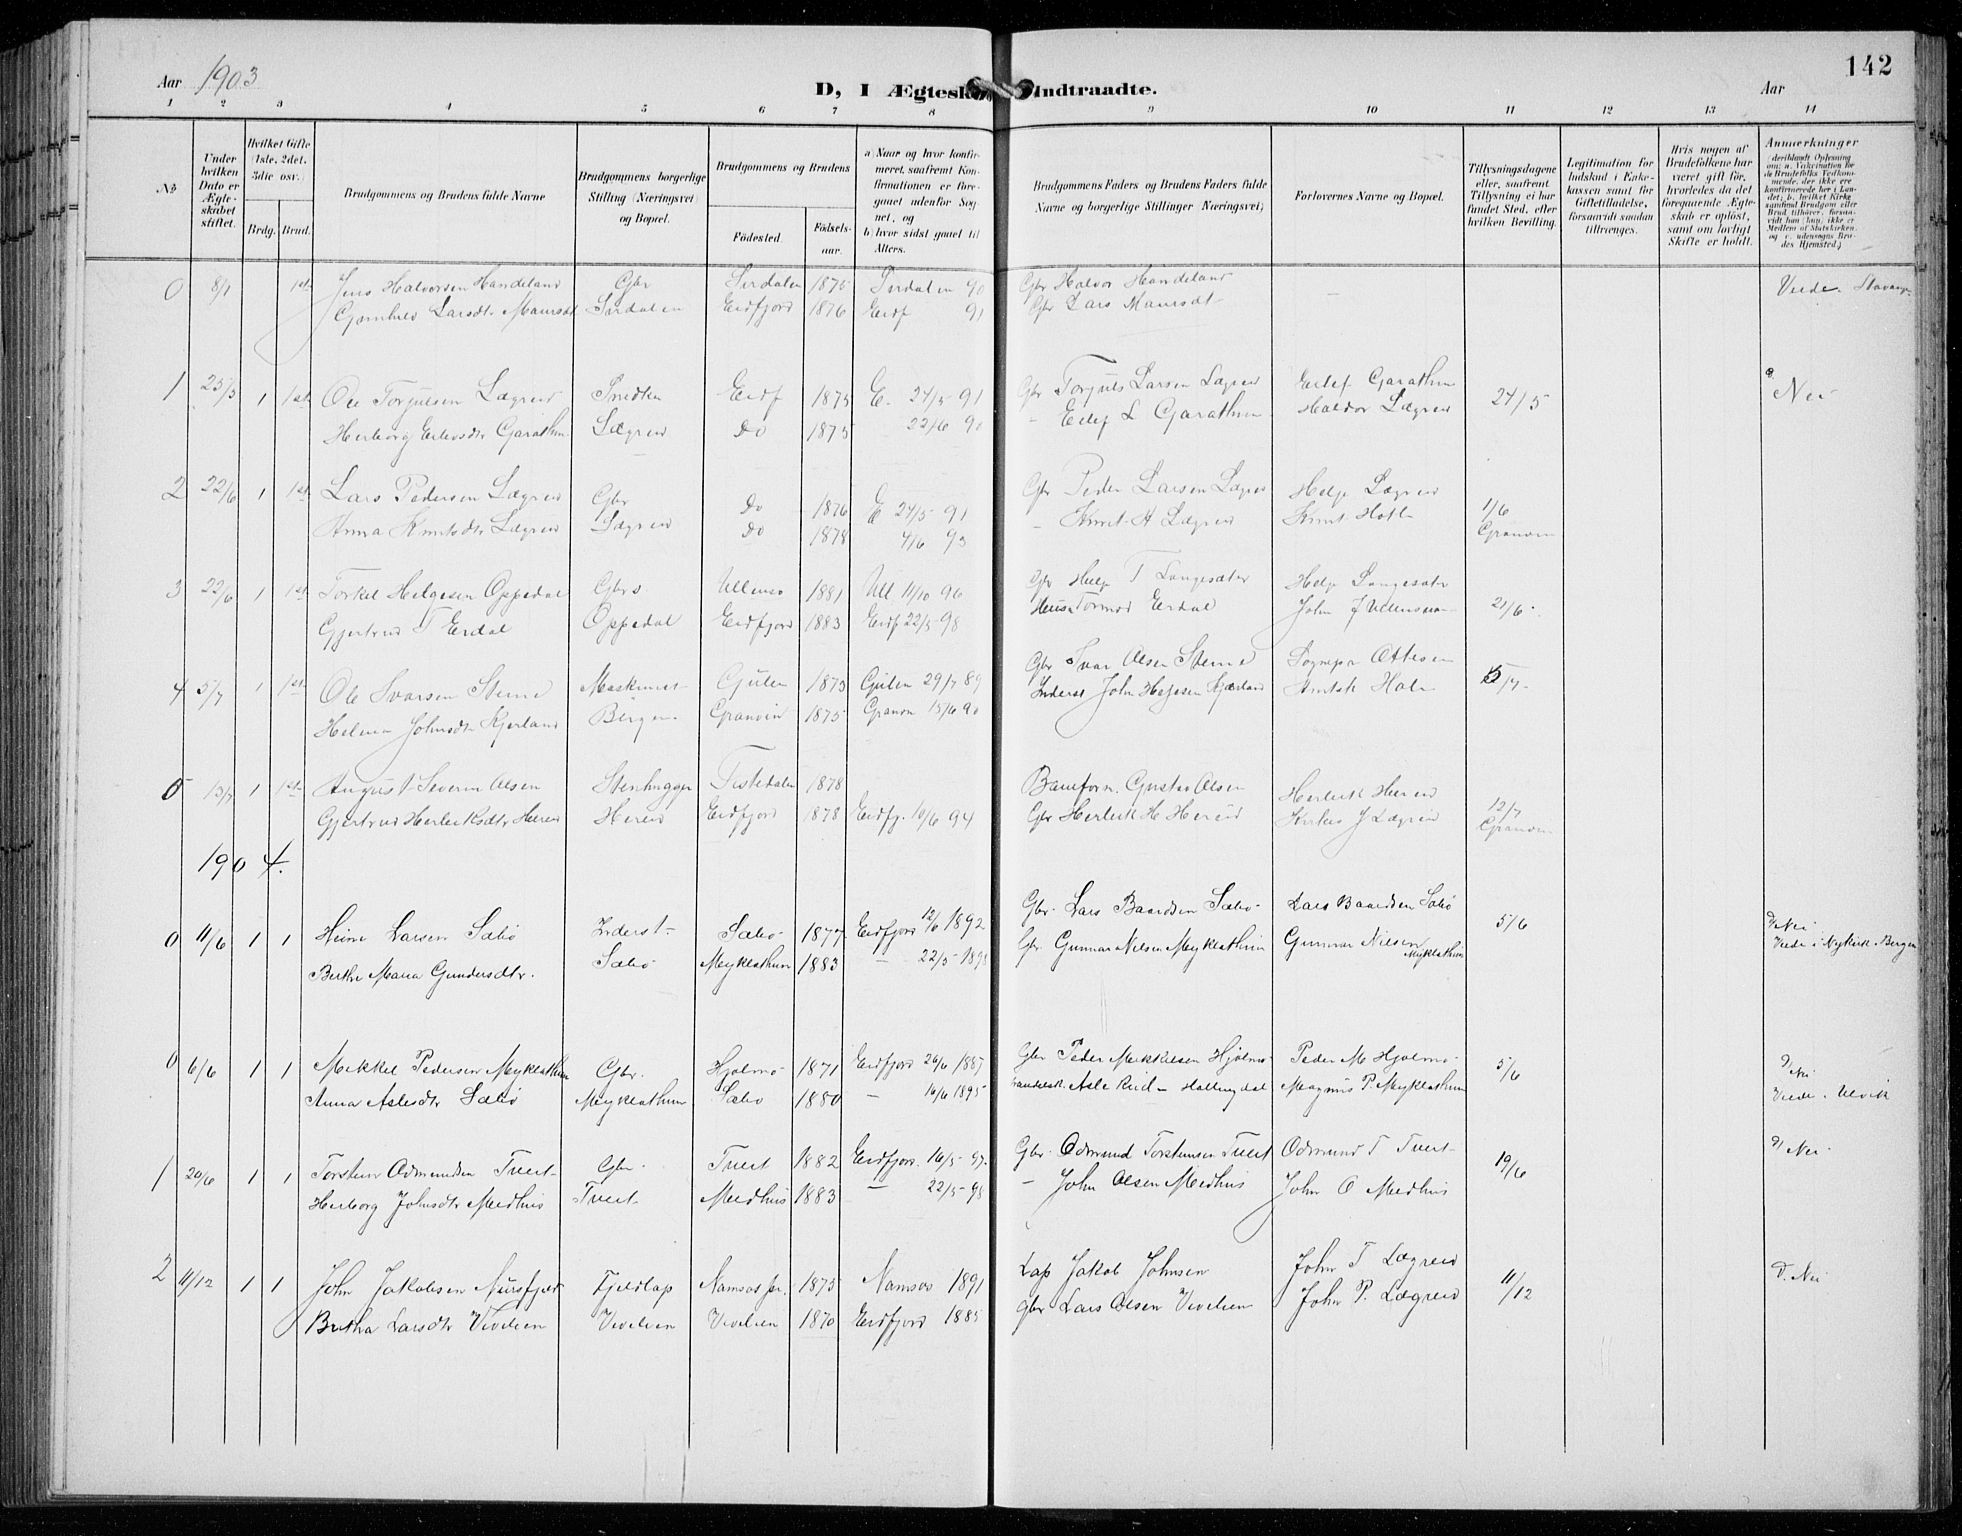 142
Aar 1903
D, I Ægtesk Indtraadte.
Aar
1 2 3 4 5 6 7 8 9 10 11 12 13 14
No
Under hvilken Dato er Ægteskabet stiftet.
Hvilket Gifte (1ste, 2det, 3die osv.)
Brdg. Brud.
Brudgommens og Brudens fulde Navne
Brudgommens borgerlige Stilling (Næringsvei) og Bopæl.
Brudgommens og Brudens
Fødested. Fødselsaar.
a) Naar og hvor konfirmeret, saafremt Konfirmationen er foregaaet udenfor Sognet, og
b) hvor sidst gaaet til Alters.
Brudgommens Faders og Brudens Faders fulde Navne og borgerlige Stillinger Næringsvei)
Forlovernes Navne og Bopæl.
Tillysningsdagene eller, saafremt Tillysning ei har fundet Sted, efter hvilken Bevilling.
Legitimation for Indskud i Enkekassen samt for Giftetilladelse, forsaavidt saadan tiltrænges.
Hvis nogen af Brudefolkene har været gift før, hvorledes da det foregaaende Ægteskab er opløst, samt om lovligt Skifte er holdt.
Anmærkninger
0 8/1 1ste Jens Halvorsen Handeland Gbr Sirdalen 1875 Sirdalen 90 Gbr Halvor Handeland Viede Stavanger
Larsdtr Maursæt Sirdalen Eidfjord 1876 Eidf 91 Gbr Lars Maursæt
1 25/5 1 1ste Ole Torjulsen Lægreid Smedken Eidf 1875 E. 24/5 91 Gbr Torjuls Larsen Lægreid Eilef Garathun 24/5 Nei
Herborg Eilevsdtr Garathun Lægreid Do 1875 22/6 90 - Eilef L Garathun Haldor Lægreid
2 22/6 1 1ste Lars Pedersen Lægreid Gbr Do 1876 E 24/5 91 Gbr Peder Larsen Lægreid Helje Lægreid 1/6
Anna Knutsdtr Lægreid Lægreid Do 1878 4/6 93 - Knut A Lægreid Knut Hotle Granvin
3 22/6 1 1ste Torkel Helgesen Oppedal Gbrs Ullensv 1881 Ull 11/10 96 Gbr Helje T Langesæter Helje Langesæter 21/6
Gjertrud T Erdal Oppedal Eidfjord 1883 Eidf 22/5 98 Tormod Erdal John J Ullensvan
4 5/7 1 1ste Ole Ivarsen Steine Maskinist Gulen 1873 Gulen 29/7 89 Gbr Ivar Olsen Steine Sognepr Ottesen 5/7
Helena Johnsdtr Kjerland Bergen Granvin 1875 Granvn 15/6 90 Inderst John Kjærland Amtsk Hole
5 13/7 1 1ste August Severin Olsen Stenhugger Tistedalen 1878 Gustav Olsen Herleik Hereid 12/7
Gjertrud Herleiksdtr Hereid Hereid Eidfjord 1878 Eidfj. 10/6 94 Gbr Herleik H Hereid J Lægreid Granvin
1904.
0 11/6 1 1 Heine Larsen Sæbø Inderst Sæbø 1877 Eidfjord 12/6 1892 Gbr. Lars Baardsen Sæbø Lars Baardsen Sæbø 5/6 Nei
Berthe Maria Gundersdtr. Sæbø Myklathun 1883 - 22/5 1898 Gbr Gunnar Nilsen Myklathun Gunnar Nilsen Myklathun Viede i Nykirk. Bergen
0 6/6 1 1 Mikkel Pedersen Myklathun Gbr. Hjølmo 1871 Eidfjord 26/6 1887 Gbr Peder Mikkelsen Hjølmo Peder M Hjølmo 5/6 Nei
Anna Aslesdtr Sæbø Myklathun Sæbø 1880 - 16/6 1895 Asle Rud - Hallingdal Magnus P Myklathun Viede i Ulvik
1 20/6 1 1 Torstein Odmundsen Tveit Gbr. Tveit 1882 Eidfjord 16/5 97. Gbr. Odmund Torsteinsen Tveit Odmund T Tveit 19/6 Nei
Herborg Johnsdtr Meidhus Tveit Meidhus 1883 - 22/5-98 - John Olsen Meidhus John O Meidhus
2 11/12 1 1 John Jakobsen Nursfjeld Fjeldlap Namsos pr. 1873 Namsos 1891 Lap Jakob Johnsen John T Lægreid 11/12 D. Nei
Bertha Larsdtr Viveliem Viveliem Viveliem 1870 Eidfjord 1885 Gbr Lars Olsen Viveliem John P. Lægreid